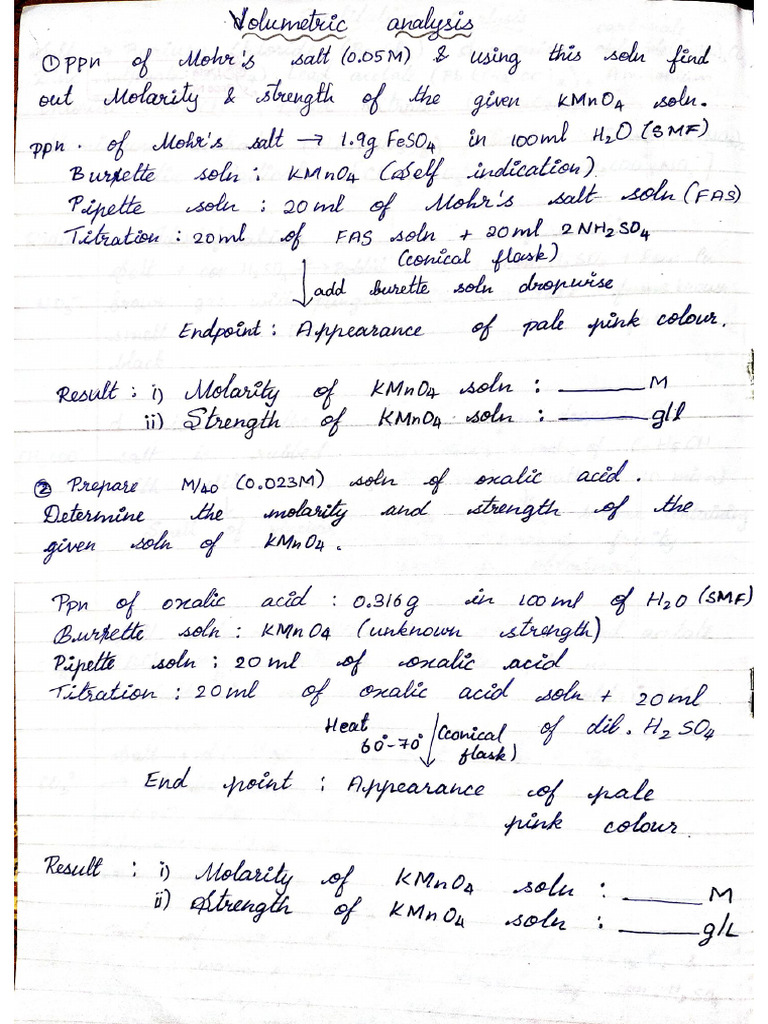 Volumetric analysis
① PPn of Mohr's salt (0.05M) & using this soln find
out Molarity & strength of the given KMnO4 soln.
PPn. of Mohr's salt → 1.9g FeSO4 in 100ml H2O (SMF)
Burette soln : KMnO4 (Self indication).
Pipette soln : 20ml of Mohr's salt soln (FAS)
Titration : 20ml of FAS soln + 20ml 2NH2SO4
(conical flask)
↓ add burette soln dropwise
Endpoint : Appearance of pale pink colour.
Result : i) Molarity of KMnO4 soln : ______ M
ii) Strength of KMnO4 soln : ______ g/l
② Prepare M/40 (0.023M) soln of oxalic acid.
Determine the molarity and strength of the
given soln of KMnO4.
Ppn of oxalic acid : 0.316g in 100ml of H2O (SMF)
Burette soln : KMnO4 (unknown strength)
Pipette soln : 20ml of oxalic acid
Titration : 20ml of oxalic acid soln + 20ml
Heat 60°-70° ↓ (conical flask) of dil. H2SO4
End point : Appearance of pale
pink colour.
Result : i) Molarity of KMnO4 soln : ______ M
ii) Strength of KMnO4 soln : ______ g/L